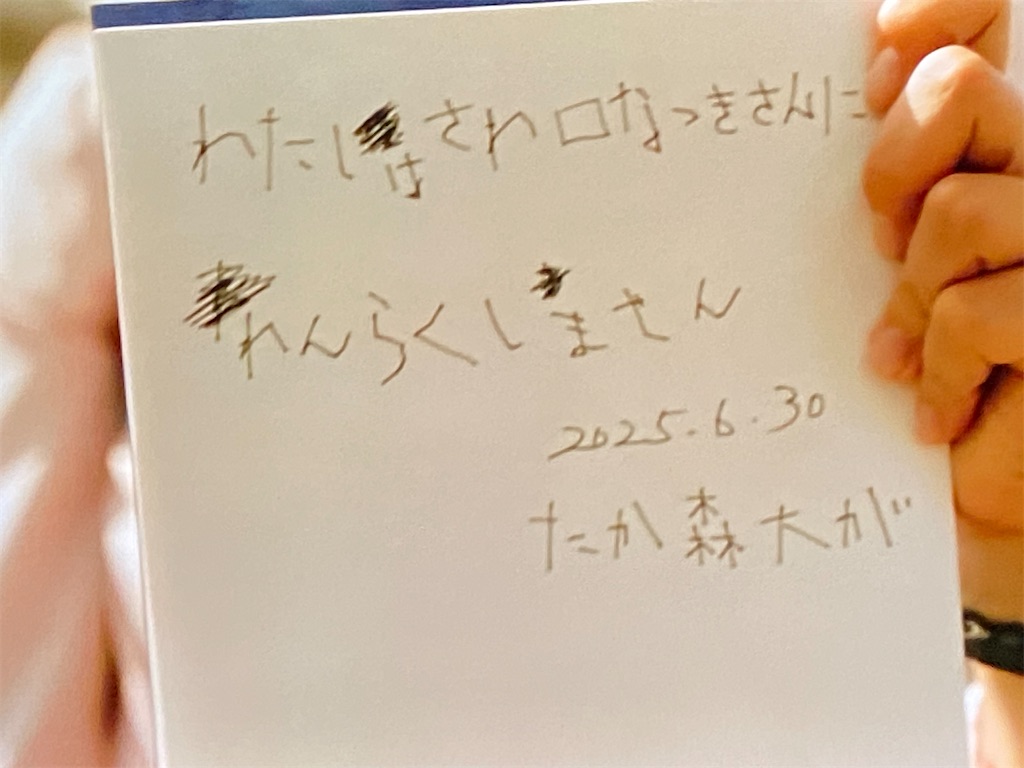 わたしはさわ口なつきさんに
れんらくしまさん
2025.6.30
たか森大が